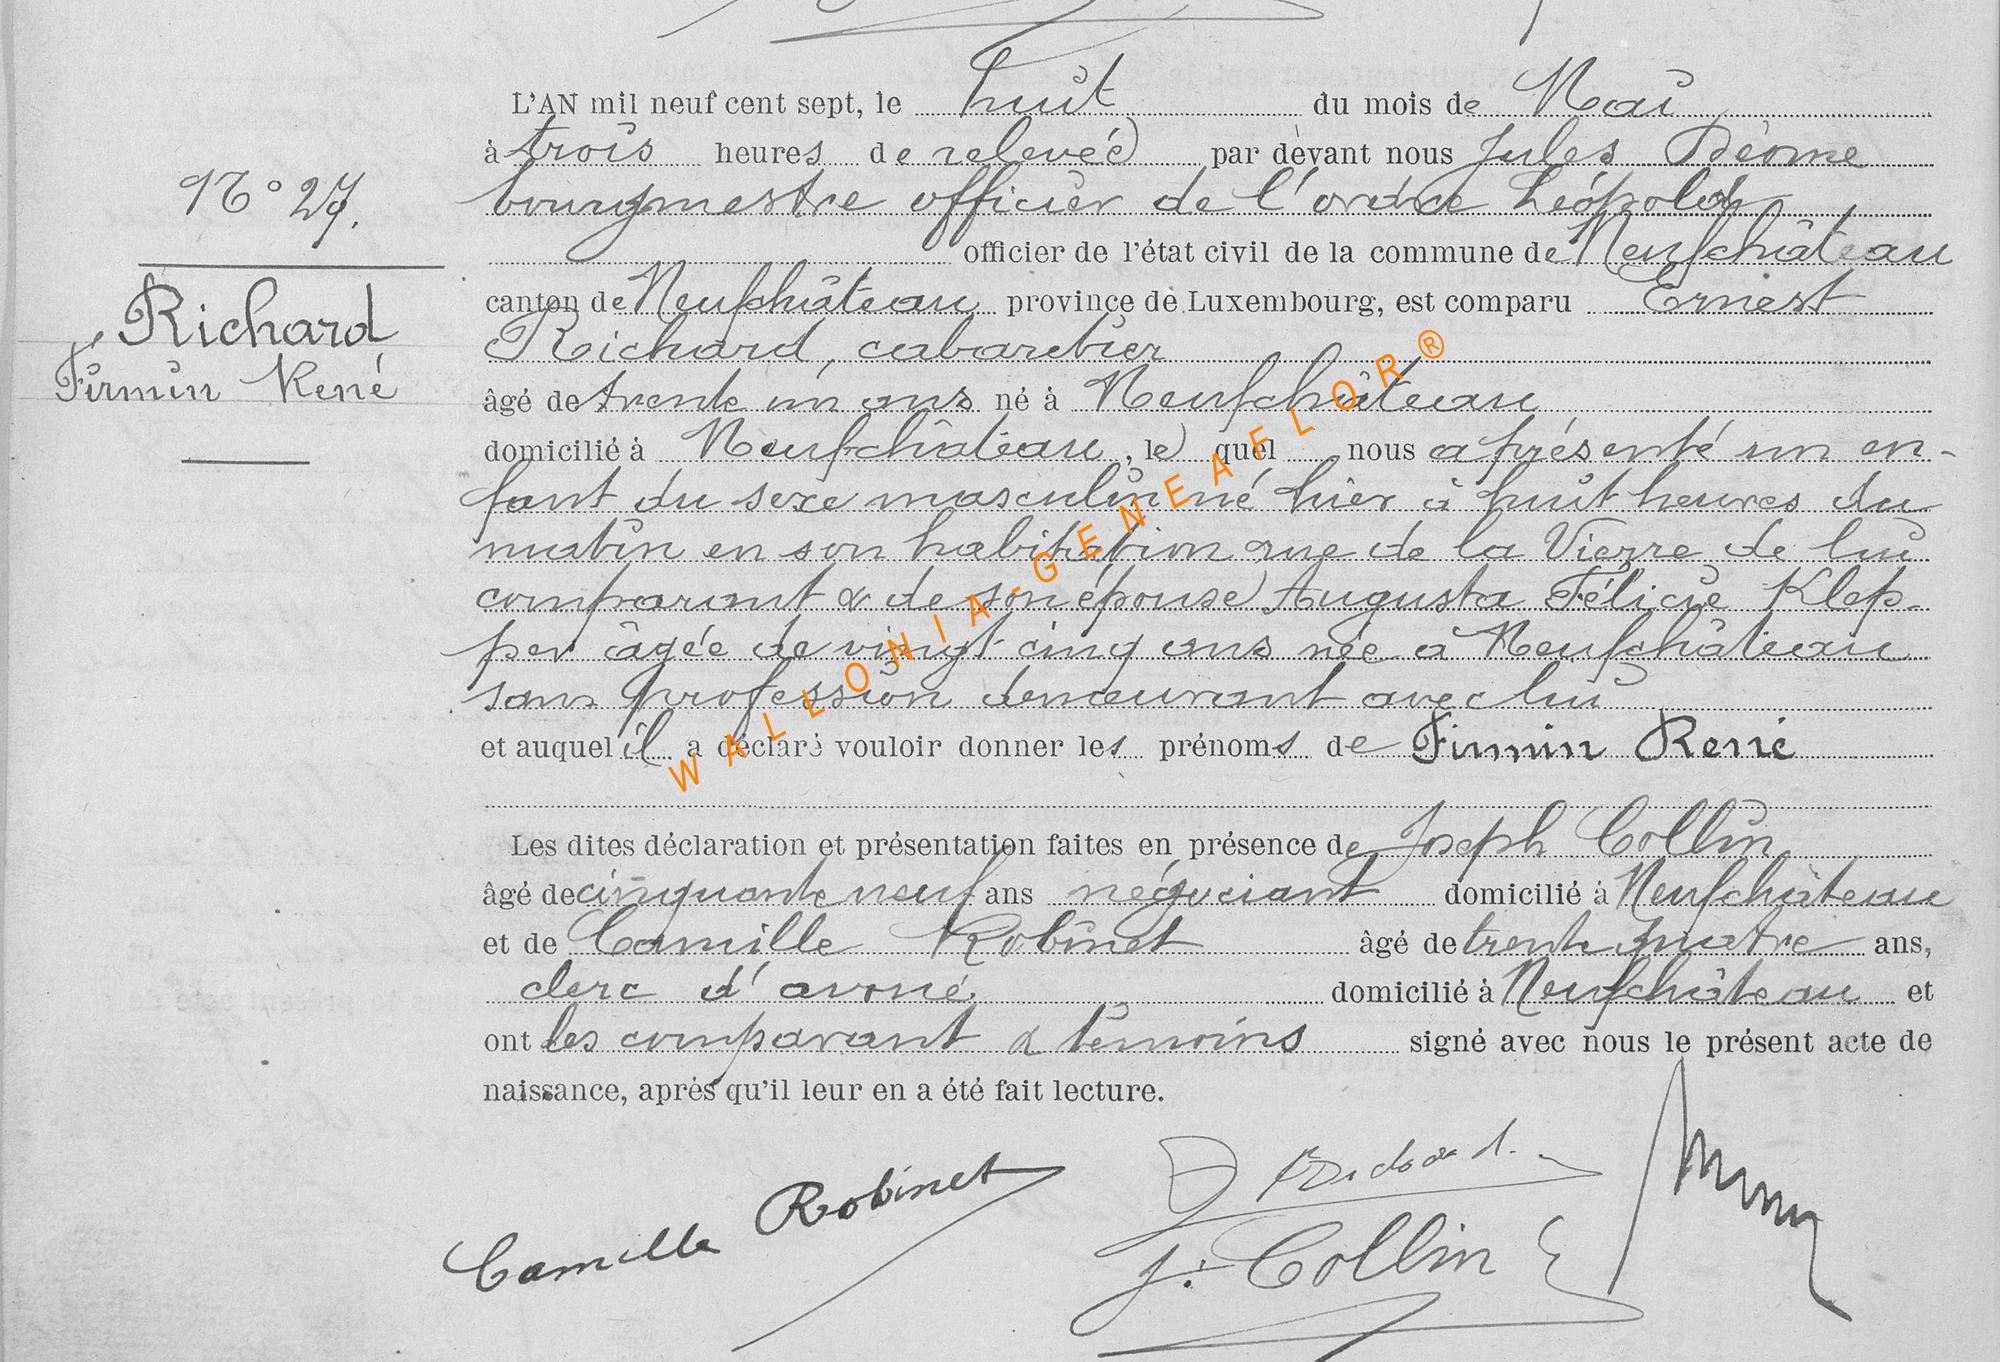 L'AN mil neuf cent sept, le huit du mois de Mai
à trois heures de relevée par devant nous Jules
bourgmestre officier de l'ordre Léopold
officier de l'état civil de la commune de Neufchâteau
canton de Neufchâteau province de Luxembourg, est comparu Ernest
Richard, cabaretier
âgé de trente un ans né à Neufchâteau
domicilié à Neufchâteau, lequel nous a présenté un en-
fant du sexe masculin né hier à huit heures du
matin en son habitation rue de la Vierre de lui
comparant & de son épouse Augusta Félicie Klep-
per âgée de vingt-cinq ans née à Neufchâteau
sans profession demeurant avec lui
et auquel il a déclaré vouloir donner les prénoms de Firmin René
Les dites déclaration et présentation faites en présence de Joseph Collin
âgé de cinquante neuf ans négociant domicilié à Neufchâteau
et de Camille Robinet âgé de trente quatre ans,
clerc d'avoué, domicilié à Neufchâteau et
ont les comparant & témoins signé avec nous le présent acte de
naissance, après qu'il leur en a été fait lecture.
N° 27.
Richard
Firmin René
Camille Robinet
J. Collin
WALLONIA-GENEAFLOR®